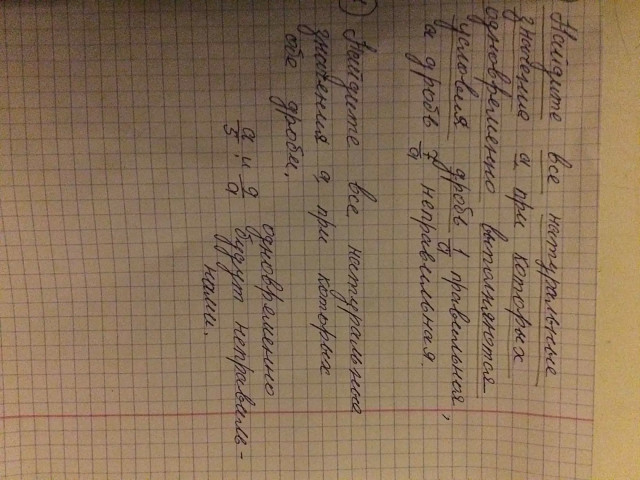 Найдите все натуральные
значения а, при которых
одновременно выполняются
условия дробь 1/а правильная,
а дробь 7/а неправильная.
Найдите все натуральные
значения а, при которых
обе дроби,
одновременно
а/5 и 9/а будут неправиль-
ными.